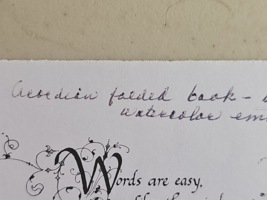 Acordian folded book -
watercolor em
Words are easy,